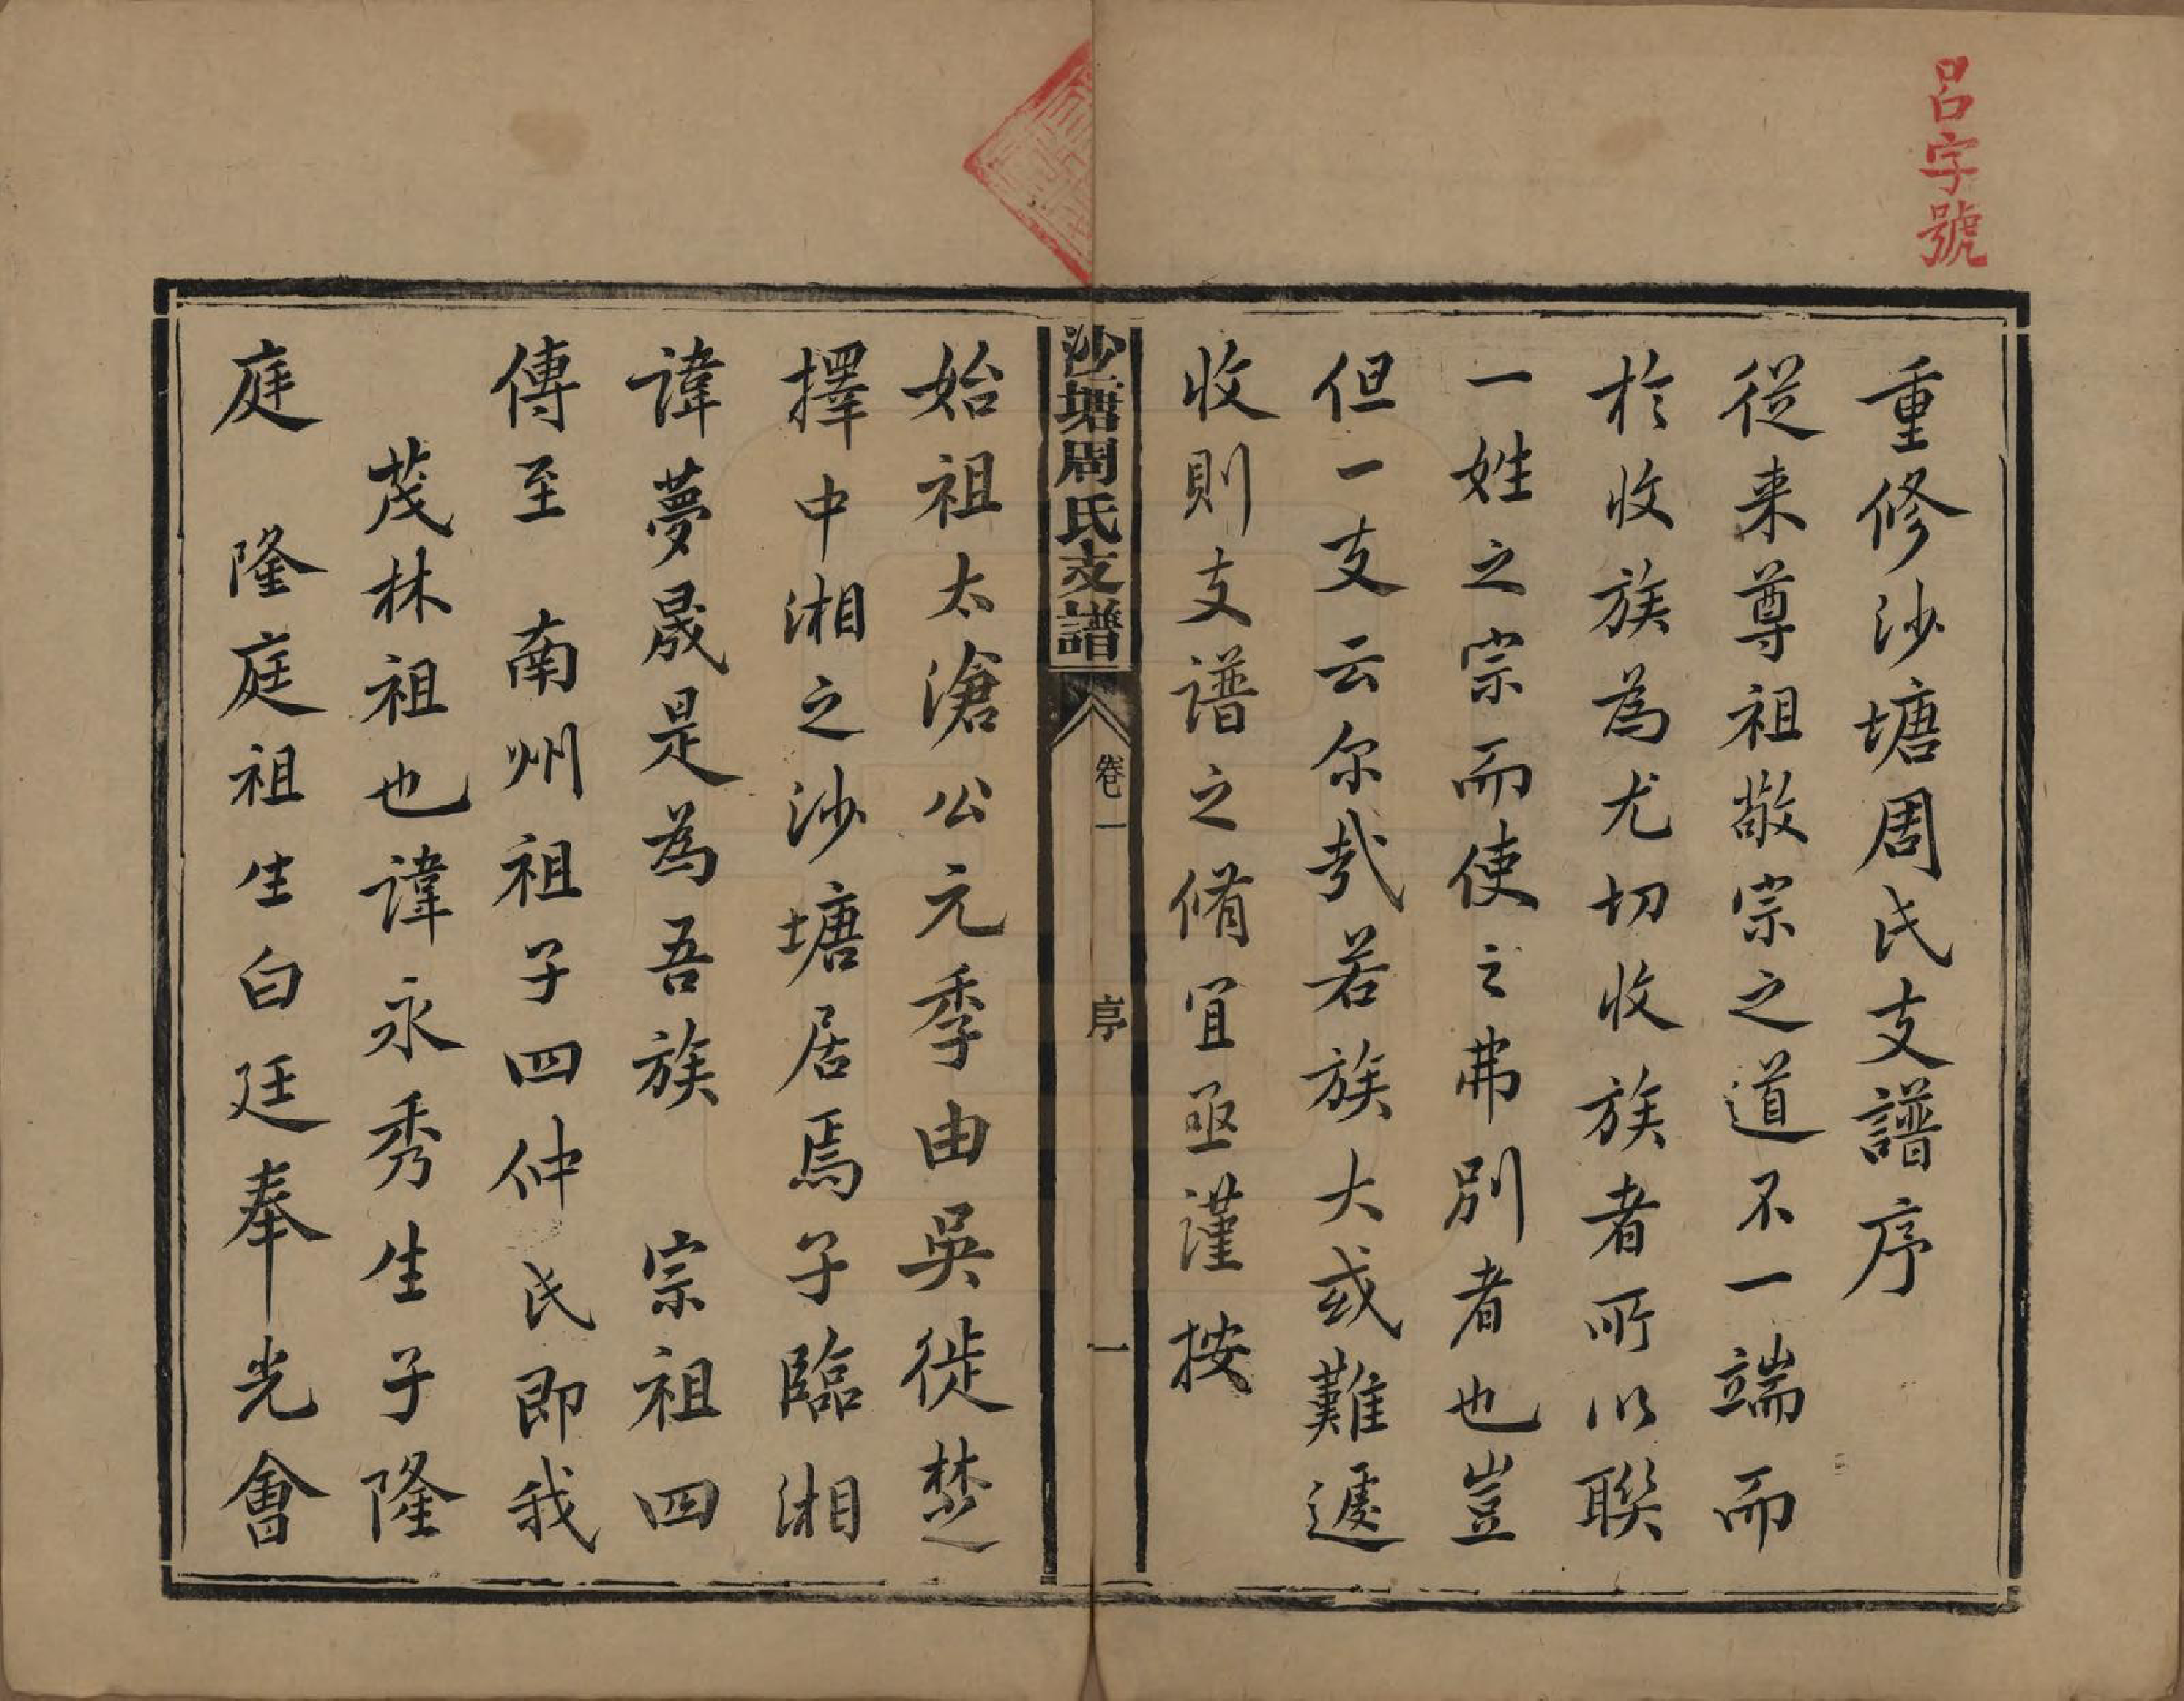 呂字號
重修沙塘周氏支譜序
從来尊祖敬宗之道不一端而
於收族為尤切收族者所以聯
一姓之宗而使之弗別者也豈
但一支云尔㢤若族大或難遽
收則支谱之脩宜亟謹按
沙塘周氏支譜 卷一 序 一
始祖太滄公元季由吳徙楚
擇中湘之沙塘居焉子臨湘
諱夢晟是為吾族 宗祖四
傳至 南州祖子四仲氏即我
茂林祖也諱永秀生子隆
庭 隆庭祖生白廷奉光會